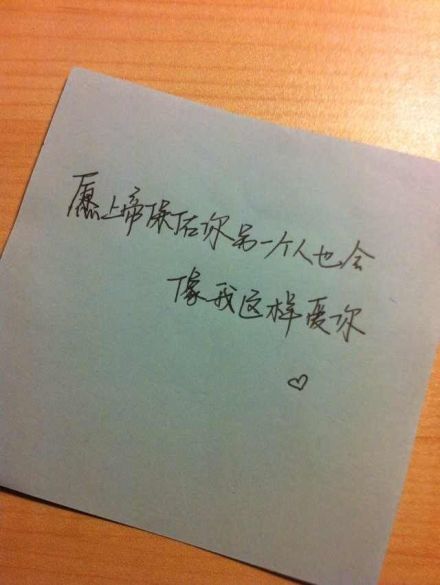 愿上帝保佑你另一个人也会
像我这样爱你